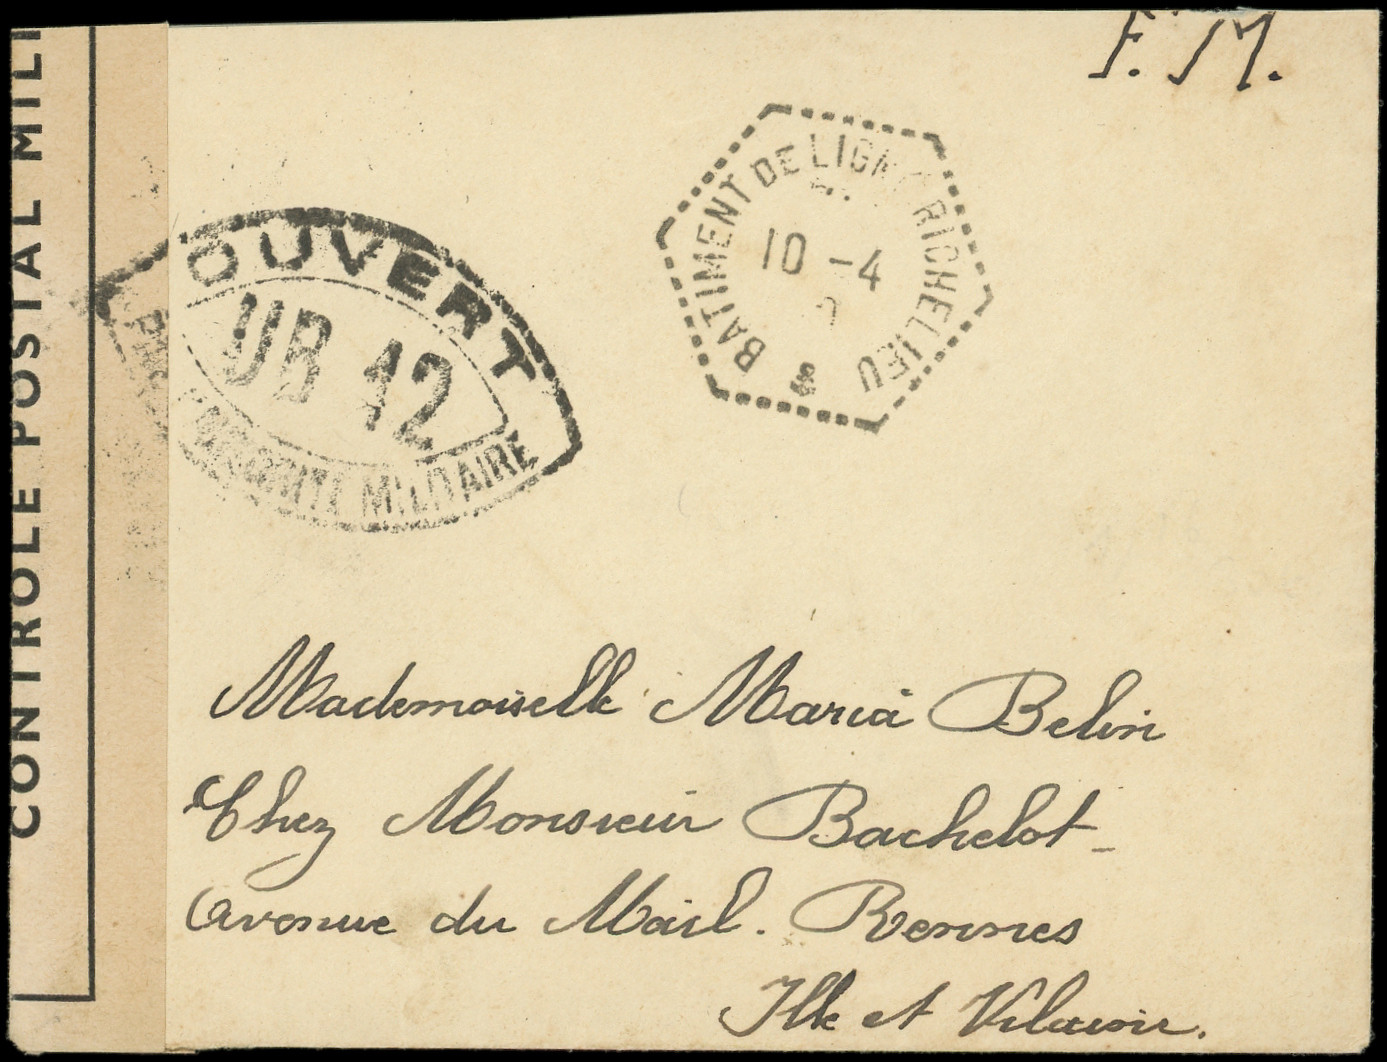 F. M.
BATIMENT DE LIGNE RICHELIEU
10 -4
OUVERT
UB 12
MILITAIRE
CONTROLE POSTAL MILI
Mademoiselle Maria Belin
Chez Monsieur Bachelot
Avenue du Mail. Rennes
Ille et Vilaine.